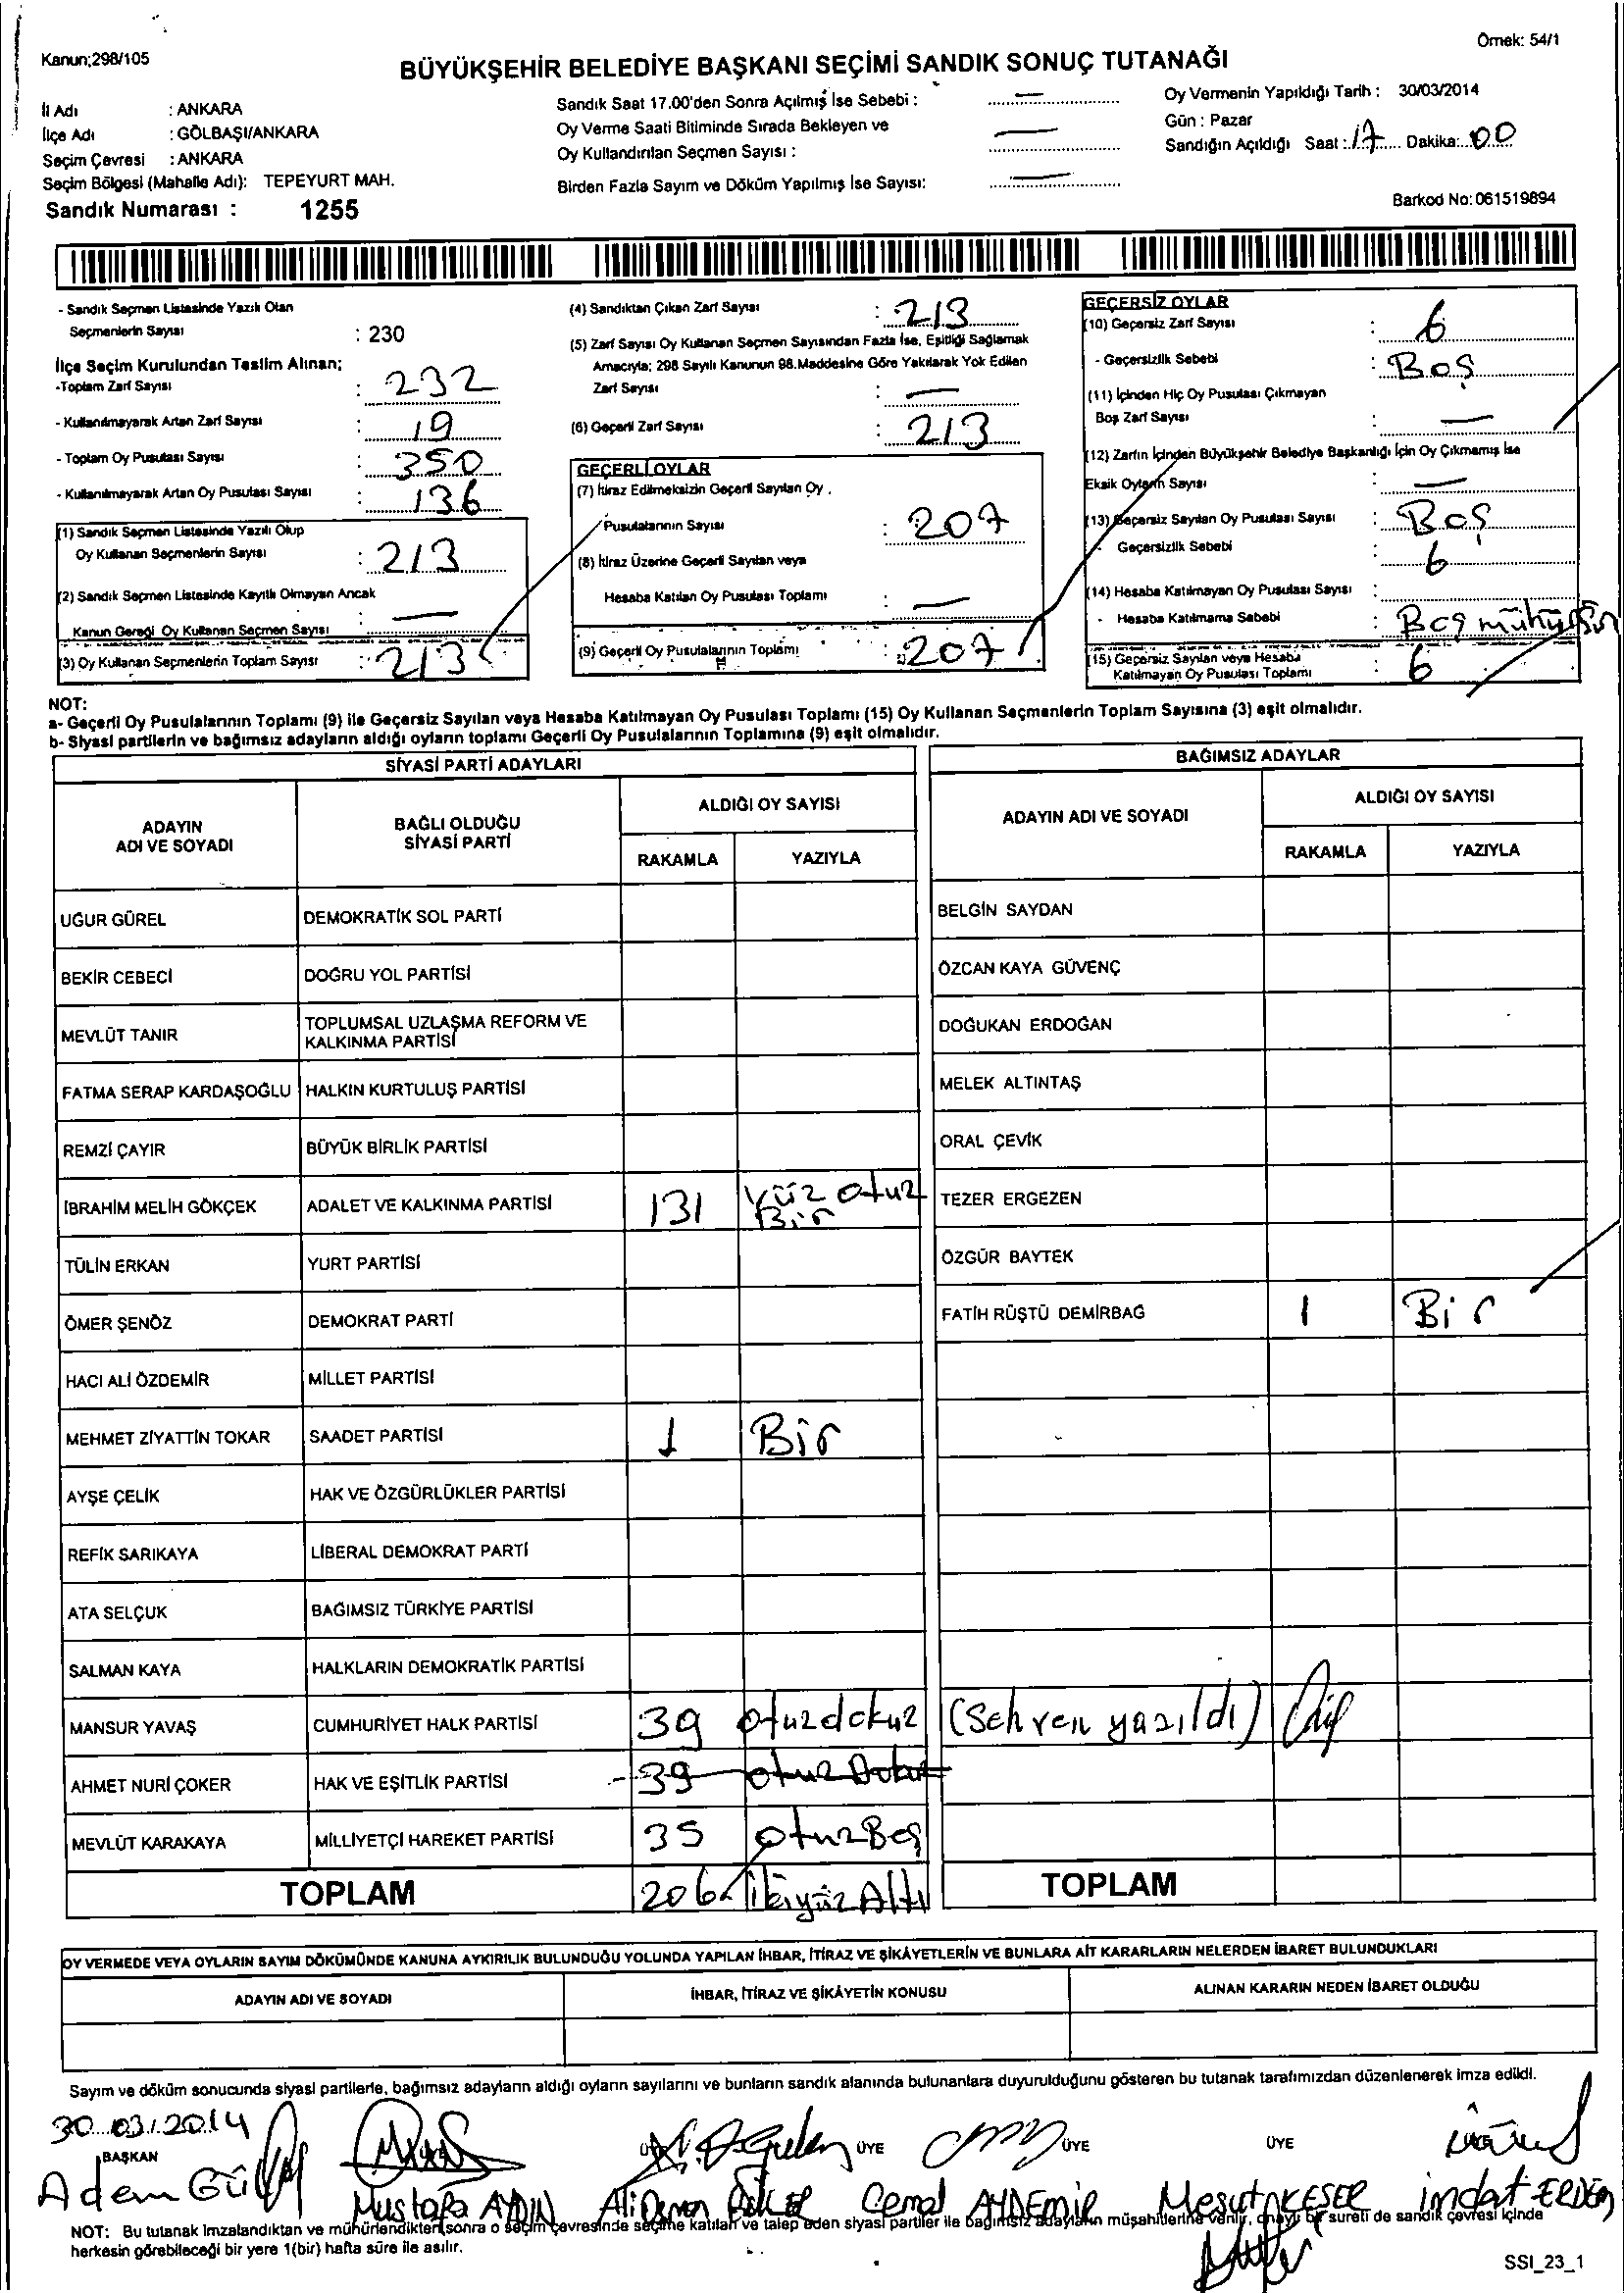 Kanun;298/105
Örnek: 54/1
BÜYÜKŞEHİR BELEDİYE BAŞKANI SEÇİMİ SANDIK SONUÇ TUTANAĞI
İl Adı : ANKARA
İlçe Adı : GÖLBAŞI/ANKARA
Seçim Çevresi : ANKARA
Seçim Bölgesi (Mahalle Adı): TEPEYURT MAH.
Sandık Numarası : 1255
Sandık Saat 17.00'den Sonra Açılmış İse Sebebi : —
Oy Verme Saati Bitiminde Sırada Bekleyen ve
Oy Kullandırılan Seçmen Sayısı : —
Birden Fazla Sayım ve Döküm Yapılmış İse Sayısı: —
Oy Vermenin Yapıldığı Tarih : 30/03/2014
Gün : Pazar
Sandığın Açıldığı Saat : 17 Dakika: 00
Barkod No: 061519894
- Sandık Seçmen Listesinde Yazılı Olan
Seçmenlerin Sayısı : 230
İlçe Seçim Kurulundan Teslim Alınan;
-Toplam Zarf Sayısı : 232
- Kullanılmayarak Artan Zarf Sayısı : 19
- Toplam Oy Pusulası Sayısı : 350
- Kullanılmayarak Artan Oy Pusulası Sayısı : 136
(1) Sandık Seçmen Listesinde Yazılı Olup
Oy Kullanan Seçmenlerin Sayısı : 213
(2) Sandık Seçmen Listesinde Kayıtlı Olmayan Ancak
Kanun Gereği Oy Kullanan Seçmen Sayısı : —
(3) Oy Kullanan Seçmenlerin Toplam Sayısı : 213
(4) Sandıktan Çıkan Zarf Sayısı : 213
(5) Zarf Sayısı Oy Kullanan Seçmen Sayısından Fazla İse, Eşitliği Sağlamak
Amacıyla; 298 Sayılı Kanunun 98.Maddesine Göre Yakılarak Yok Edilen
Zarf Sayısı : —
(6) Geçerli Zarf Sayısı : 213
GEÇERLİ OYLAR
(7) İtiraz Edilmeksizin Geçerli Sayılan Oy
Pusulalarının Sayısı : 207
(8) İtiraz Üzerine Geçerli Sayılan veya
Hesaba Katılan Oy Pusulası Toplamı : —
(9) Geçerli Oy Pusulalarının Toplamı : 207
GEÇERSİZ OYLAR
(10) Geçersiz Zarf Sayısı : 6
- Geçersizlik Sebebi : Boş
(11) İçinden Hiç Oy Pusulası Çıkmayan
Boş Zarf Sayısı : —
(12) Zarfın İçinden Büyükşehir Belediye Başkanlığı İçin Oy Çıkmamış İse
Eksik Oyların Sayısı : —
(13) Geçersiz Sayılan Oy Pusulası Sayısı : Boş
- Geçersizlik Sebebi : 6
(14) Hesaba Katılmayan Oy Pusulası Sayısı :
- Hesaba Katılmama Sebebi : Boş mühürsür
(15) Geçersiz Sayılan veya Hesaba
Katılmayan Oy Pusulası Toplamı : 6
NOT:
a- Geçerli Oy Pusulalarının Toplamı (9) ile Geçersiz Sayılan veya Hesaba Katılmayan Oy Pusulası Toplamı (15) Oy Kullanan Seçmenlerin Toplam Sayısına (3) eşit olmalıdır.
b- Siyasi partilerin ve bağımsız adayların aldığı oyların toplamı Geçerli Oy Pusulalarının Toplamına (9) eşit olmalıdır.
SİYASİ PARTİ ADAYLARI
ADAYIN ADI VE SOYADI BAĞLI OLDUĞU SİYASİ PARTİ ALDIĞI OY SAYISI
RAKAMLA YAZIYLA
UĞUR GÜREL DEMOKRATİK SOL PARTİ
BEKİR CEBECİ DOĞRU YOL PARTİSİ
MEVLÜT TANIR TOPLUMSAL UZLAŞMA REFORM VE KALKINMA PARTİSİ
FATMA SERAP KARDAŞOĞLU HALKIN KURTULUŞ PARTİSİ
REMZİ ÇAYIR BÜYÜK BİRLİK PARTİSİ
İBRAHİM MELİH GÖKÇEK ADALET VE KALKINMA PARTİSİ 131 Yüz otuz Bir
TÜLİN ERKAN YURT PARTİSİ
ÖMER ŞENÖZ DEMOKRAT PARTİ
HACI ALİ ÖZDEMİR MİLLET PARTİSİ
MEHMET ZİYATTİN TOKAR SAADET PARTİSİ 1 Bir
AYŞE ÇELİK HAK VE ÖZGÜRLÜKLER PARTİSİ
REFİK SARIKAYA LİBERAL DEMOKRAT PARTİ
ATA SELÇUK BAĞIMSIZ TÜRKİYE PARTİSİ
SALMAN KAYA HALKLARIN DEMOKRATİK PARTİSİ
MANSUR YAVAŞ CUMHURİYET HALK PARTİSİ 39 otuzdokuz (Sehven yazıldı)
AHMET NURİ ÇOKER HAK VE EŞİTLİK PARTİSİ 39 otuz Dokuz
MEVLÜT KARAKAYA MİLLİYETÇİ HAREKET PARTİSİ 35 otuz Beş
TOPLAM 206 ikiyüz Altı
BAĞIMSIZ ADAYLAR
ADAYIN ADI VE SOYADI ALDIĞI OY SAYISI
RAKAMLA YAZIYLA
BELGİN SAYDAN
ÖZCAN KAYA GÜVENÇ
DOĞUKAN ERDOĞAN
MELEK ALTINTAŞ
ORAL ÇEVİK
TEZER ERGEZEN
ÖZGÜR BAYTEK
FATİH RÜŞTÜ DEMİRBAĞ 1 Bir
TOPLAM
OY VERMEDE VEYA OYLARIN SAYIM DÖKÜMÜNDE KANUNA AYKIRILIK BULUNDUĞU YOLUNDA YAPILAN İHBAR, İTİRAZ VE ŞİKÂYETLERİN VE BUNLARA AİT KARARLARIN NELERDEN İBARET BULUNDUKLARI
ADAYIN ADI VE SOYADI İHBAR, İTİRAZ VE ŞİKÂYETİN KONUSU ALINAN KARARIN NEDEN İBARET OLDUĞU
Sayım ve döküm sonucunda siyasi partilerle, bağımsız adayların aldığı oyların sayılarını ve bunların sandık alanında bulunanlara duyurulduğunu gösteren bu tutanak tarafımızdan düzenlenerek imza edildi.
30.03.2014
BAŞKAN ÜYE ÜYE ÜYE
Adem Mustafa AYDIN Ali Cemal AYDEMİR Mesut KESER imdat ERDEM
NOT: Bu tutanak imzalandıktan ve mühürlendikten sonra o seçim çevresinde seçime katılan ve talep eden siyasi partiler ile bağımsız adayların müşahitlerine verilir, onaylı bir sureti de sandık çevresi içinde
herkesin görebileceği bir yere 1(bir) hafta süre ile asılır.
SSI_23_1